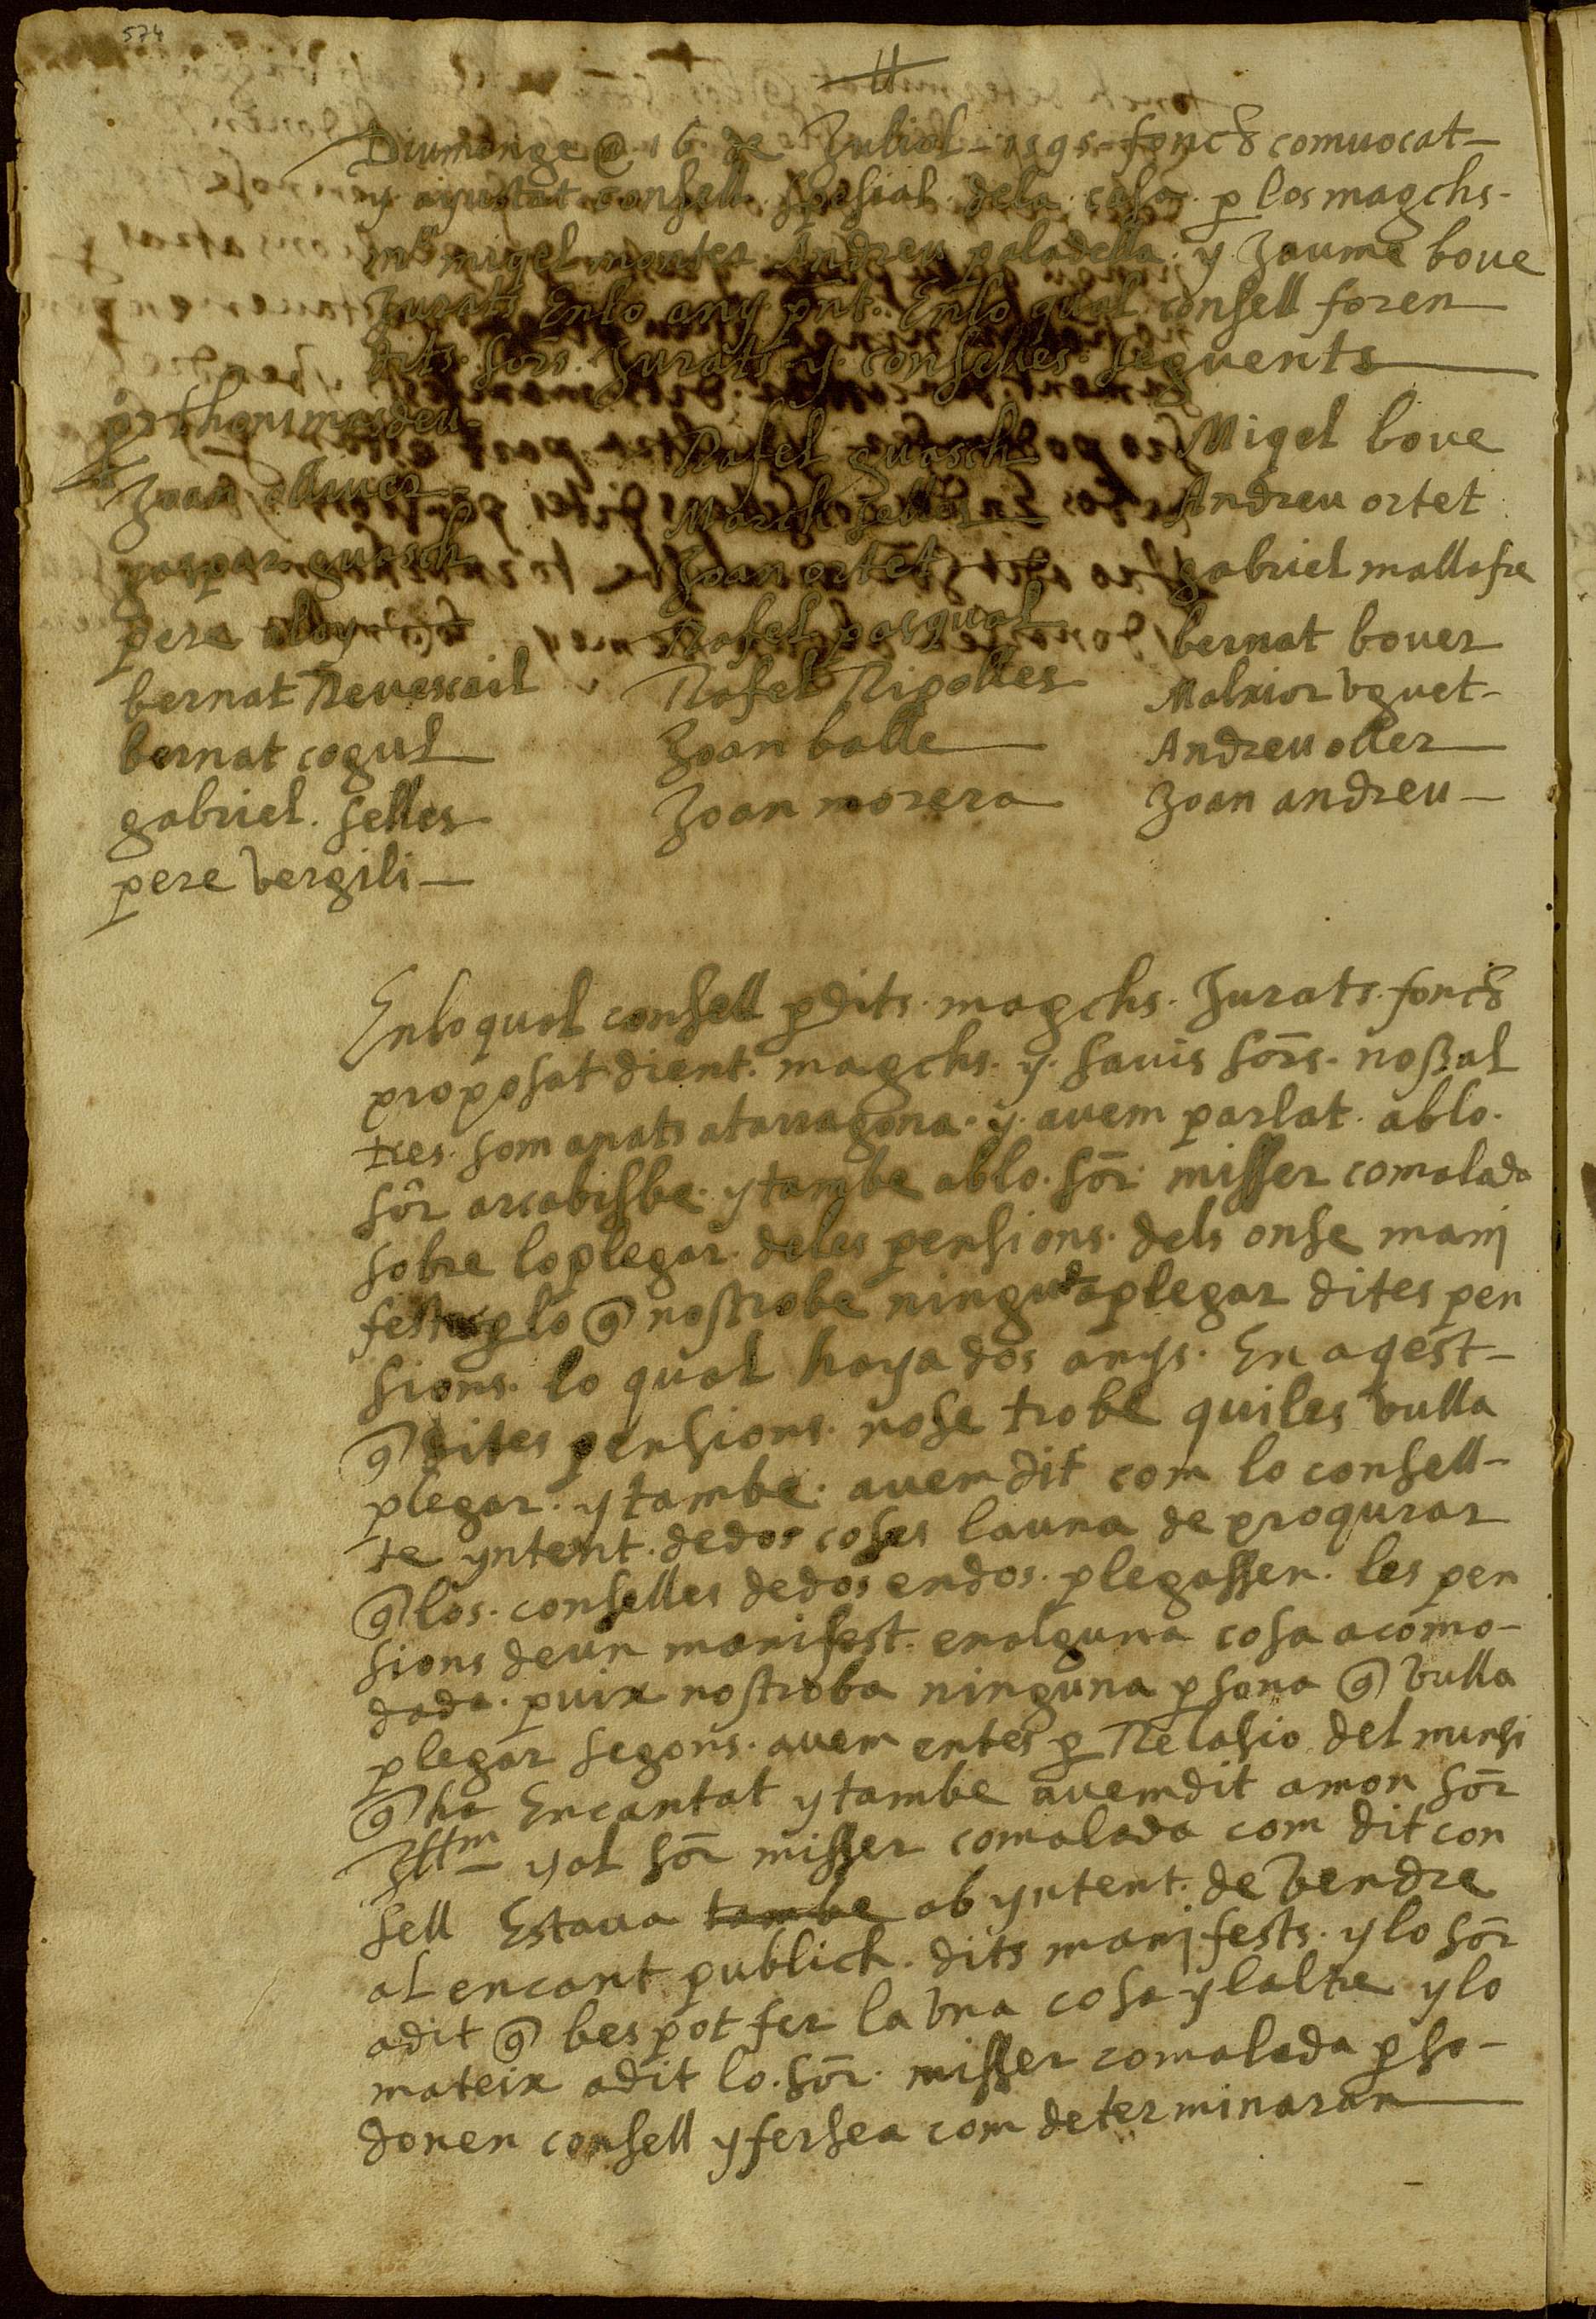 574
Diumenge @ 16 de Juliol - 1595 - fonch comuocat -
y ayustat consell spesial dela casa p los magchs.
mº migel montes Andreu paladella y Jaume boue
Jurats Enlo any pnt. Enlo qual consell foren
dits sors. Jurats y conselles seguents
thoni masdeu -
Rafel guasch
Migel boue
Joan oliuer -
March Selles
Andreu ortet
gaspar guasch
Joan ortet
gabriel mallafre
pere aloy
Rafel pasqual
bernat bouer
bernat Reuescail
Rafel Ripolles
Malxior vguet -
bernat cogul
Joan balle
Andreu oller
gabriel. selles
Joan morera
Joan andreu -
pere vergili -
Enlo qual consell p dits. magchs. Jurats. fonch
proposat dient. magchs. y. sauis sors. nosal
tres. som anats atarragona. y. auem parlat. ablo.
sor arcabisbe. ytambe ablo. sor. misser comalada
sobre loplegar. deles pensions. dels onse mani
fests p lo q nostrobe ningu aplegar dites pen
sions. lo qual haya dos anys. En aqest -
q dites pensions. nose trobe quiles vulla
plegar. ytambe. auem dit com lo consell -
te yntent. dedos coses launa de proqurar
q los. conselles dedos endos. plegassen. les pen
sions deun manifest. enalguna cosa acomo -
dada. puix nostroba ninguna psona q vulla
plegar segons. auem entes p Relasio del nunsi
q ha Encantat ytambe auemdit amon sor
Illm yal sor misser comalada com dit con
sell Estaua tambe ab yntent. de vendre
al encant publich. dits manifests. ylo sor
adit q bes pot fer la vna cosa ylaltre ylo
mateix adit lo. sor. misser comalada p so -
donen consell yfersea com determinaran